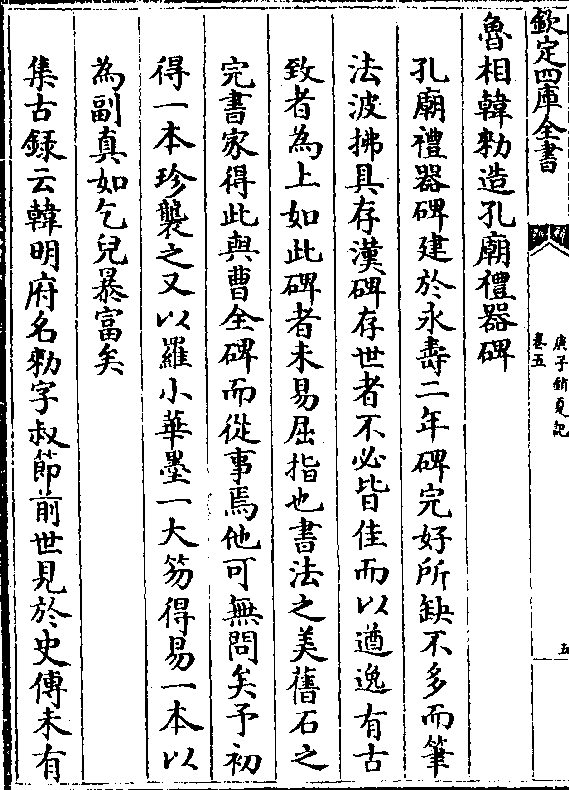 欽定四庫全書
庚子銷夏記
卷五
五
魯相韓勑造孔廟禮器碑
孔廟禮器碑建於永壽二年碑完好所缺不多而筆
法波拂具存漢碑存世者不必皆佳而以遒逸有古
致者為上如此碑者未易屈指也書法之美舊石之
完書家得此與曹全碑而從事焉他可無問矣予初
得一本珍襲之又以羅小華墨一大笏得易一本以
為副真如乞兒暴富矣
集古録云韓明府名勑字叔節前世見於史傳未有